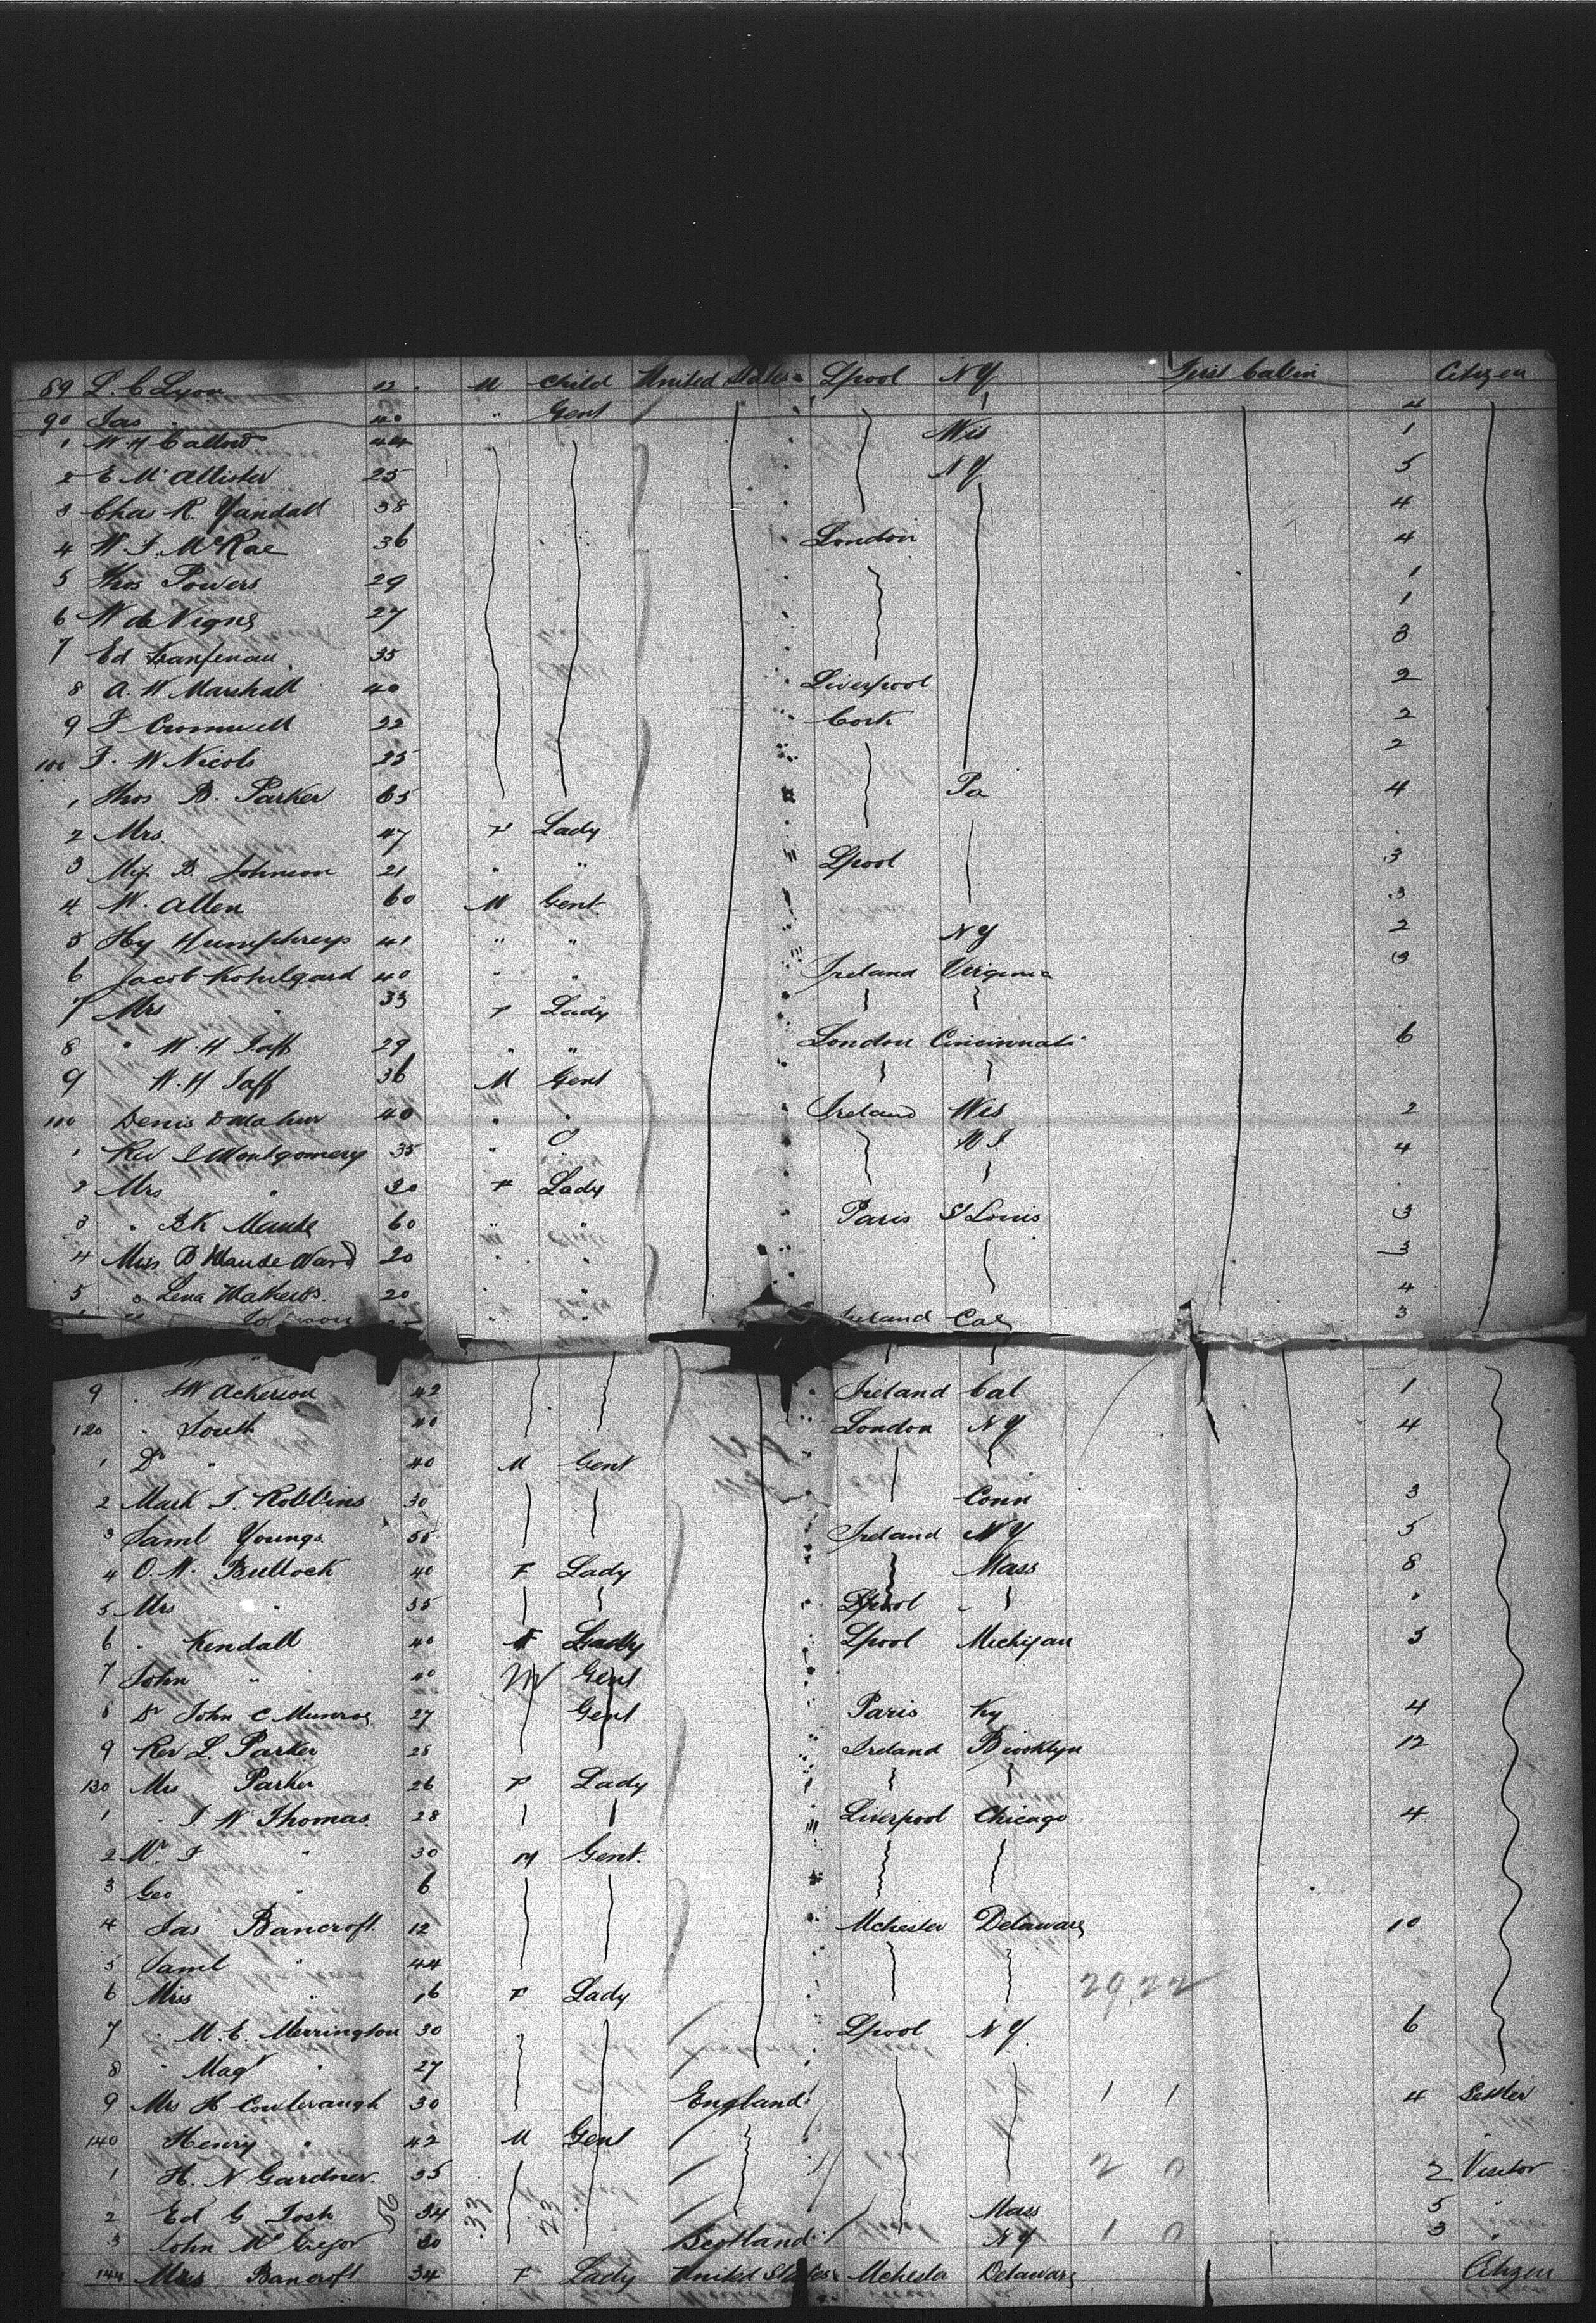 89 L. C Lyon 12 M Child United States Lpool NY First Cabin Citizen
90 Jas " 40 " Gent 4
1 W. H 44 Wis 1
2 E McAllister 25 NY 5
3 Chas R. Yandall 38 4
4 W. J. McRae 36 London 4
5 Thos Powers 29 1
6 W de Vigne 27 1
7 Ed 35 3
8 A. W Marshall 40 Liverpool 2
9 J Cromwell 22 Cork 2
100 J. W Nicols 25 2
1 Thos B. Parker 65 Pa 4
2 Mrs. 47 F Lady
3 B. Johnson 21 " " Lpool 3
4 W. Allen 60 M Gent. 3
5 Hy Humphreys 41 " " NY 2
6 Jacob 40 " " Ireland Virginia 3
7 Mrs " 33 F Lady
8 " W. H Taff 29 " " London Cincinnati 6
9 W. H Taff 36 M Gent
110 Denis 40 " " Ireland Wis 2
1 Rev Montgomery 35 " " 4
2 Mrs " 30 F Lady
3 " B K Maude 60 " " Paris St Louis 3
4 Miss B Maude Ward 20 " " 3
5 " Lena 20 " " 4
Ireland Cal 3
9 " Ackerson 42 Ireland Cal 1
120 " South 40 London NY 4
1 Dr " 40 M Gent
2 Mark T. Robbins 30 Conn 3
3 Saml Youngs 55 Ireland NY 5
4 O. W. Bullock 40 F Lady Mass 8
5 Mrs " 35 Lpool
6 " Kendall 40 F Lady Lpool Michigan 3
7 John " 40 M Gent
8 Dr John C Munroe 27 Gent Paris Ky 4
9 Rev L. Parker 28 Ireland Brooklyn 12
130 Mrs Parker 26 F Lady
1 " J. W Thomas. 28 Liverpool Chicago 4
2 Mr J " 30 M Gent.
3 Geo " 6
4 Jas Bancroft. 12 Mchester Delaware 10
5 Saml " 44
6 Miss " 16 F Lady 29.22
7 " M. E. Merrington 30 Lpool NY. 6
8 " Magt " 27
9 Mrs H 30 England 1 1 4 Settler
140 Henry " 42 M Gent "
1 H. N Gardner. 35 2 0 2 Visitor
2 Ed G Tosh 34 33 23 Mass 5 "
3 John McGregor 30 Scotland NY 1 0 3 "
144 Mrs Bancroft 34 F Lady United States Mchester Delaware Citizen